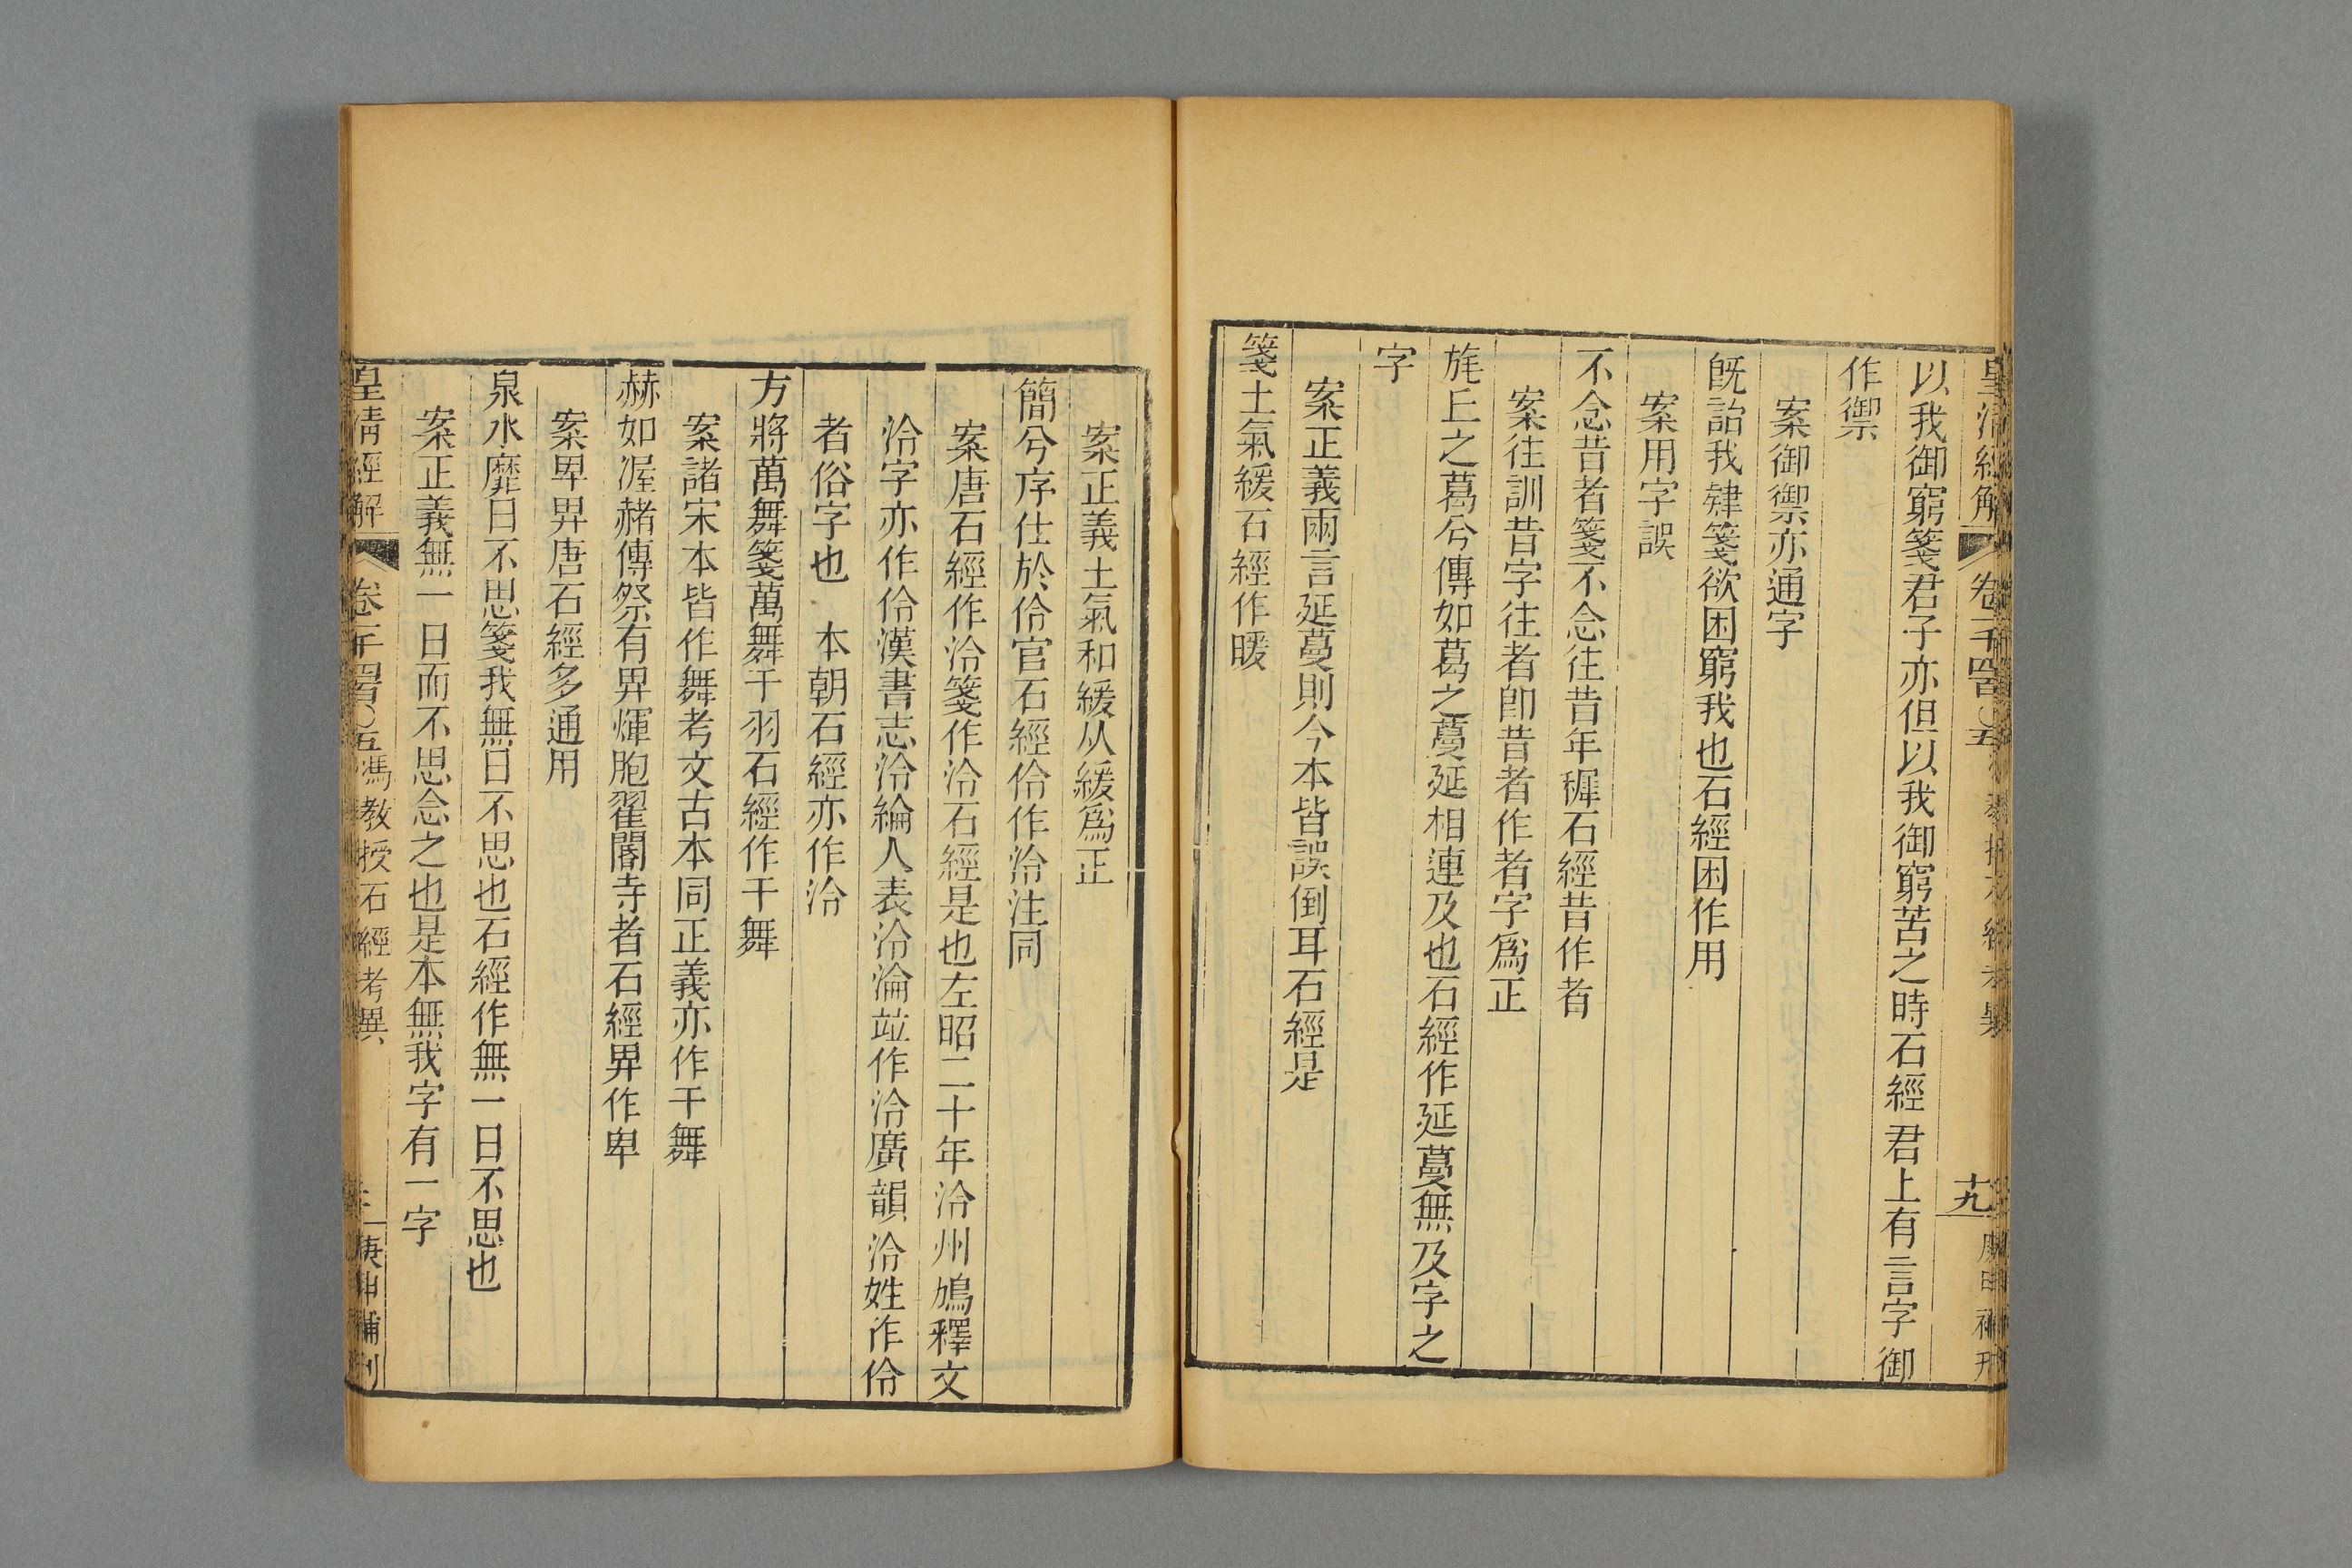 皇清經解 卷一千四百〇五 馮教授石經考異 十九 庚申補刊
以我御窮箋君子亦但以我御窮苦之時石經君上有言字御
作禦
案御禦亦通字
旣詒我肄箋欲困窮我也石經困作用
案用字誤
不念昔者箋不念往昔年稺石經昔作者
案往訓昔字往者卽昔者作者字爲正
旄丘之葛兮傳如葛之蔓延相連及也石經作延蔓無及字之
字
案正義兩言延蔓則今本皆誤倒耳石經是
箋土氣緩石經作暖
案正義土氣和緩从緩爲正
簡兮序仕於伶官石經伶作泠注同
案唐石經作泠箋作泠石經是也左昭二十年泠州鳩釋文
泠字亦作伶漢書志泠綸人表泠淪竝作泠廣韻泠姓作伶
者俗字也 本朝石經亦作泠
方將萬舞箋萬舞干羽石經作干舞
案諸宋本皆作舞考文古本同正義亦作干舞
赫如渥赭傳祭有畀煇胞翟閽寺者石經畀作卑
案卑畀唐石經多通用
泉水靡日不思箋我無日不思也石經作無一日不思也
案正義無一日而不思念之也是本無我字有一字
皇清經解 卷一千四百〇五 馮教授石經考異 庚申補刊